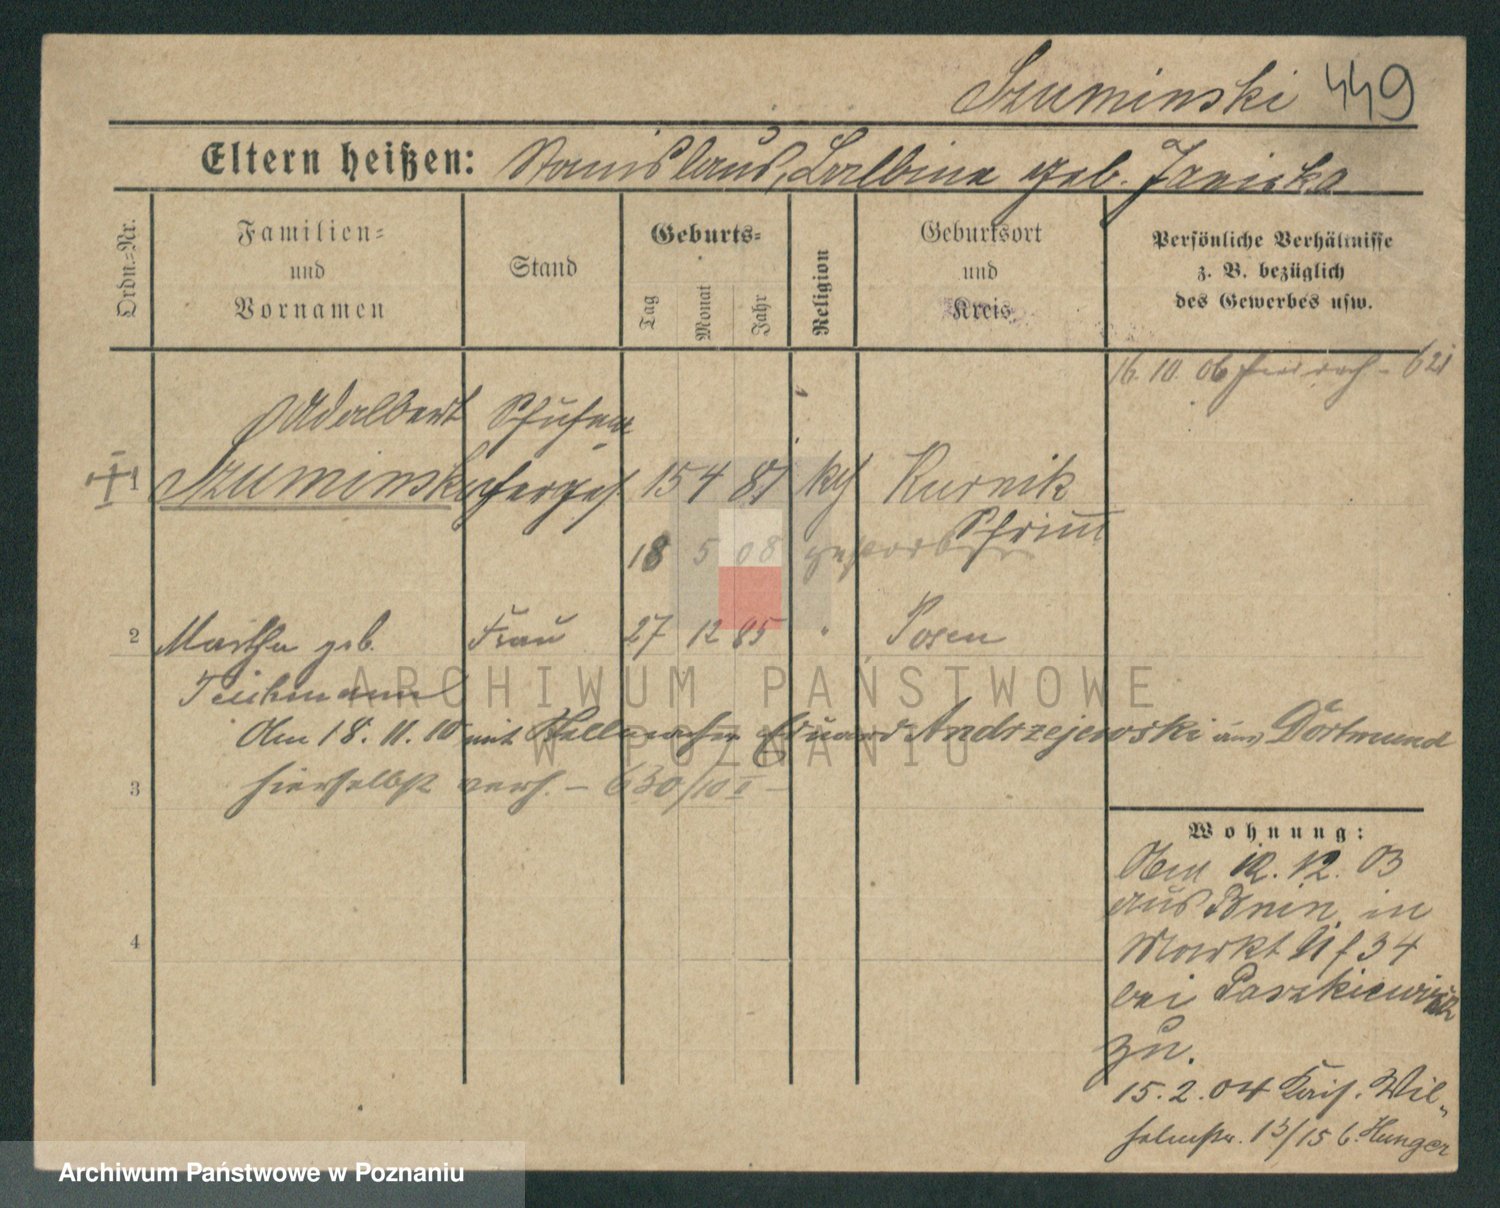 Szuminski 449
Eltern heißen: Stanislaus, Balbina geb. Janicka
Ordn.-Nr.
Familien-
und
Vornamen
Stand
Geburts-
Tag
Monat
Jahr
Religion
Geburtsort
und
Kreis
Persönliche Verhältnisse
z. B. bezüglich
des Gewerbes usw.
16. 10. 06 621
Adalbert Schuhma
1 Szuminski cherges. 15 4 81 kth Kurnik
Schrimm
18 5 08 gestorben
2 Martha geb. Frau 27 12 85 " Posen
Teichmann
Am 18. 11. 10 mit Kellner Eduard Andrzejewski aus Dortmund
3 hierselbst verh. – 630/10 II –
4
Wohnung:
Am 12. 12. 03
aus Bnin in
Markt 34
bei Paszkiewicz
zu.
15. 2. 04 Kais. Wil-
helmstr. 13/15 b. Hunger
ARCHIWUM PAŃSTWOWE
W POZNANIU
Archiwum Państwowe w Poznaniu